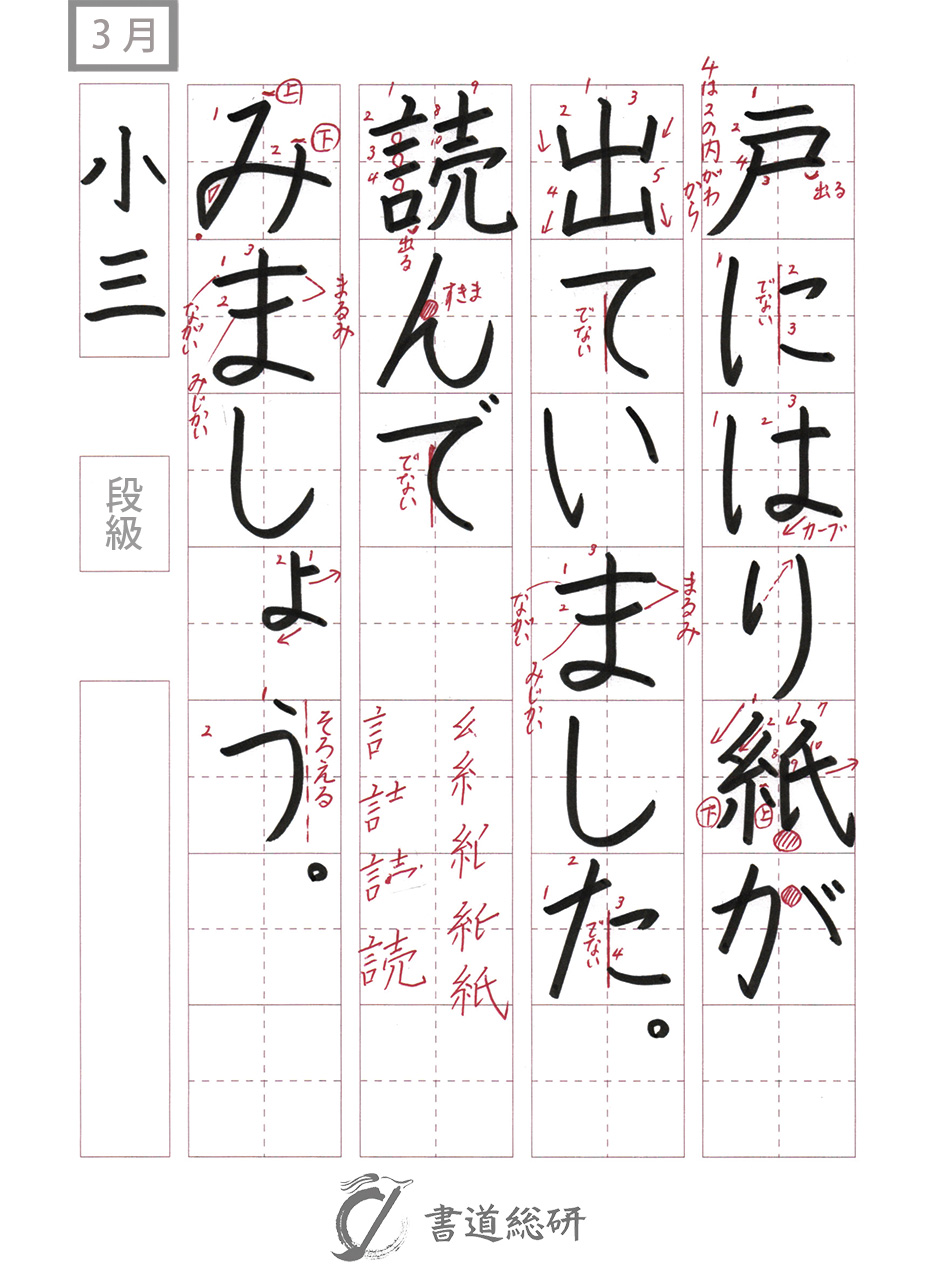 3月
戸にはり紙が
出ていました。
読んで
みましょう。
小三
段級
4は2の内がわから
出る
でない
カーブ
下
上
でない
まるみ
ながい
みじかい
でない
出る
すきま
でない
上
下
まるみ
ながい
みじかい
そろえる
糸
紙
言
読
書道総研